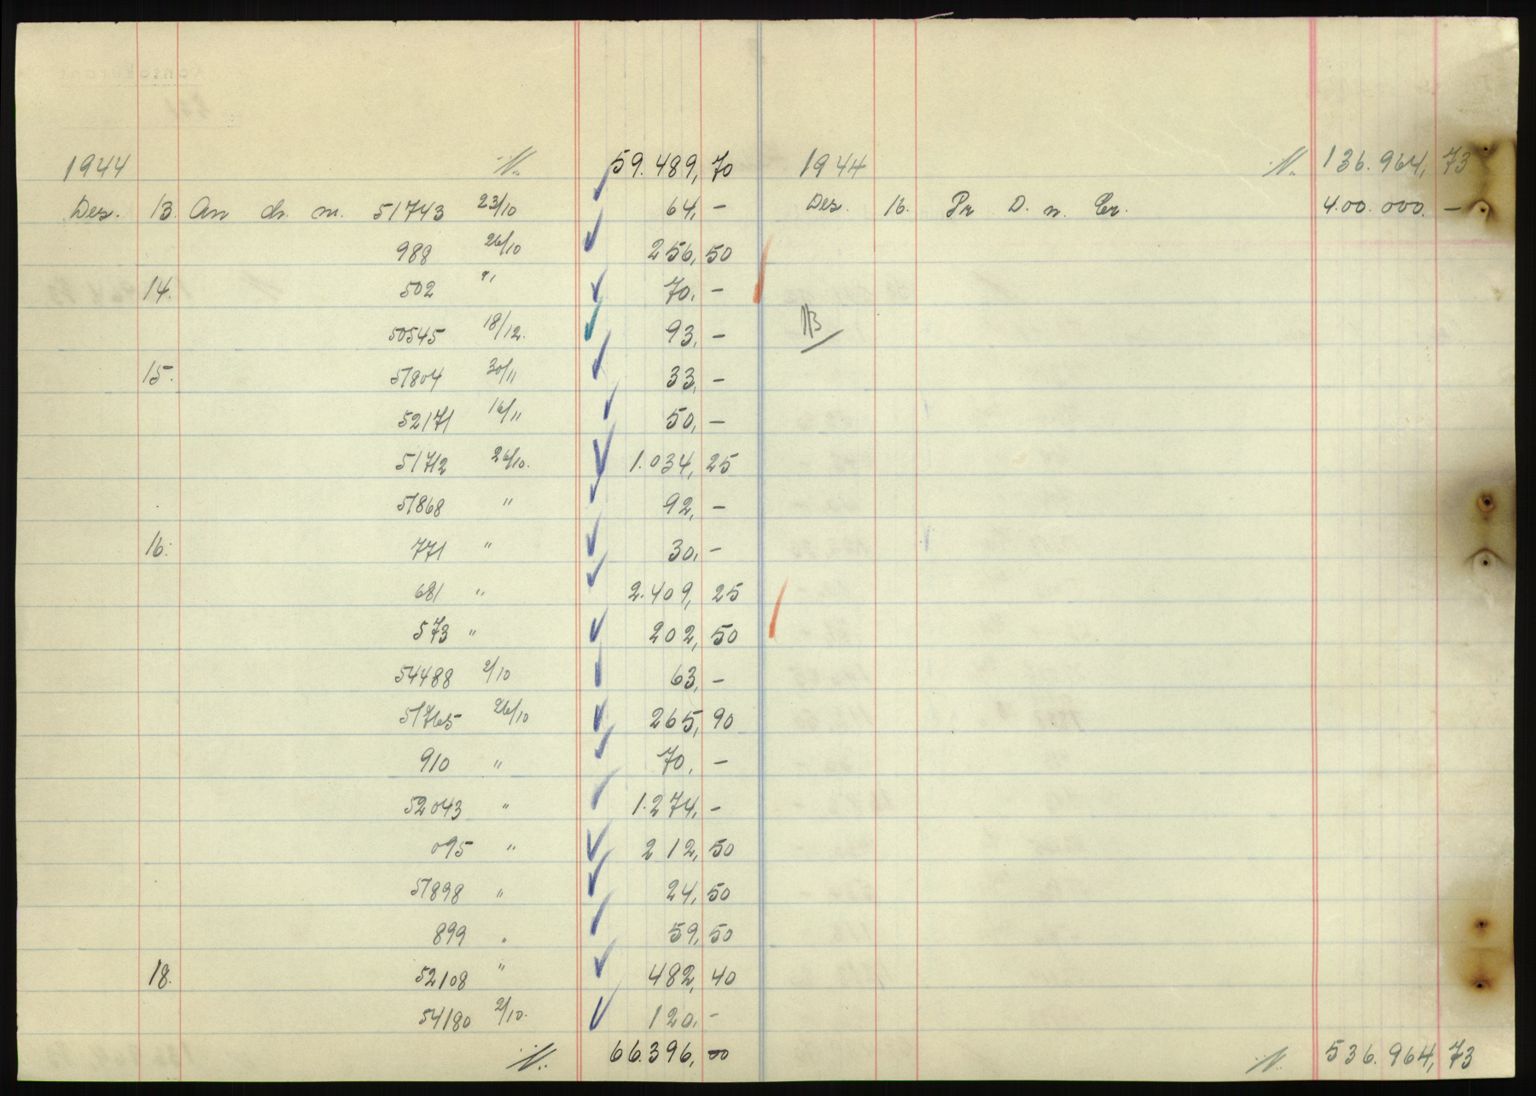 1944 N. 59.489,70
Des. 13. An ch. m. 51743 23/10 64,-
988 26/10 256,50
14. 502 " 70,-
50545 18/12. 93,-
15. 51804 30/11 33,-
52171 16/11 50,-
51712 26/10. 1.034,25
51868 " 92,-
16. 771 " 30,-
681 " 2.409,25
573 " 202,50
54488 2/10 63,-
51765 26/10 265,90
910 " 70,-
52043 " 1.274,-
095 " 212,50
51898 " 24,50
899 " 59,50
18. 52108 " 482,40
54180 2/10. 120,-
N. 66.396,00
1944 N. 136.964,73
Des. 16. Pr D. n. Cr. 400.000.-
NB
N. 536.964,73